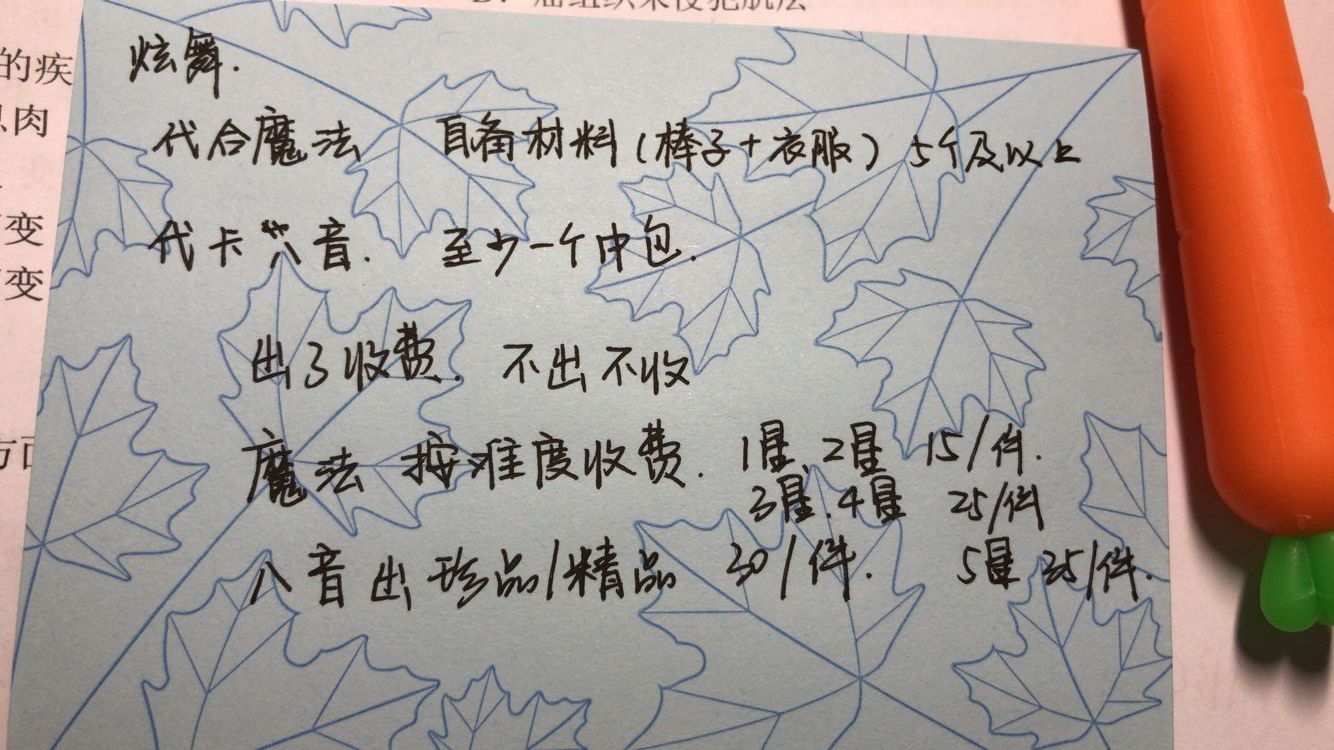 的疾
肉
变
变
炫舞.
代合魔法 自备材料(棒子+衣服) 5个及以上
代卡八音. 至少一个中包.
出了收费. 不出不收
魔法 按难度收费. 1星、2星 15/件.
3星、4星 25/件
八音出珍品/精品 30/件. 5星 35/件.